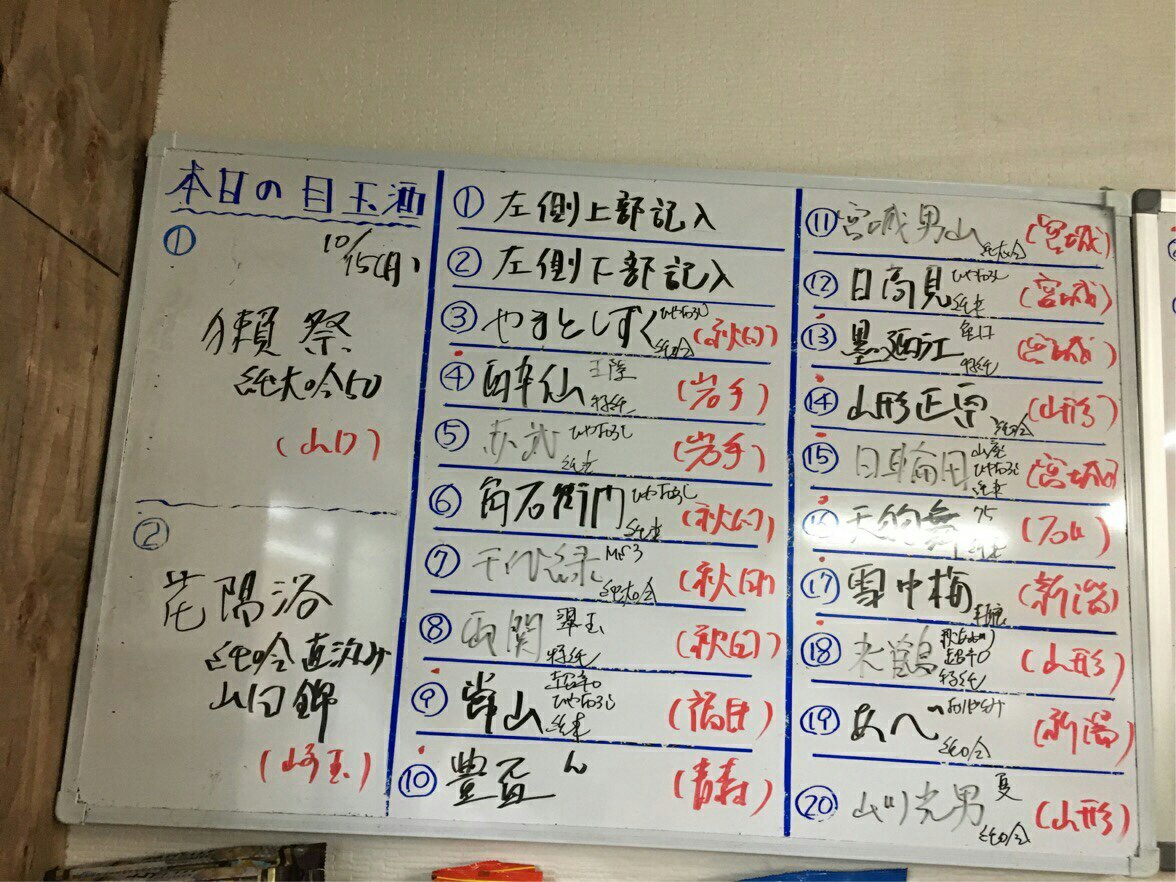 本日の目玉酒
①
10/15(月)
獺祭
純大吟50
(山口)
②
花陽浴
純吟 直汲み
山田錦
(埼玉)
① 左側上部記入
② 左側下部記入
③ やまとしずく ひやおろし 純吟 (秋田)
④ 酔仙 特純 (岩手)
⑤ 赤武 ひやおろし 純米 (岩手)
⑥ 角右衛門 ひやおろし 純米 (秋田)
⑦ 千代緑 純大吟 (秋田)
⑧ 両関 翠玉 特純 (秋田)
⑨ 常山 超辛 ひやおろし 純米 (福井)
⑩ 豊盃 ん (青森)
⑪ 宮城男山 純大吟 (宮城)
⑫ 日高見 ひやおろし 純米 (宮城)
⑬ 墨廼江 特純 (宮城)
⑭ 山形正宗 純吟 (山形)
⑮ 日輪田 山廃 ひやおろし 純米 (宮城)
⑯ 天狗舞 (石川)
⑰ 雪中梅 (新潟)
⑱ 米鶴 超辛 特純 (山形)
⑲ あべ 純吟 (新潟)
⑳ 山川光男 夏 純吟 (山形)